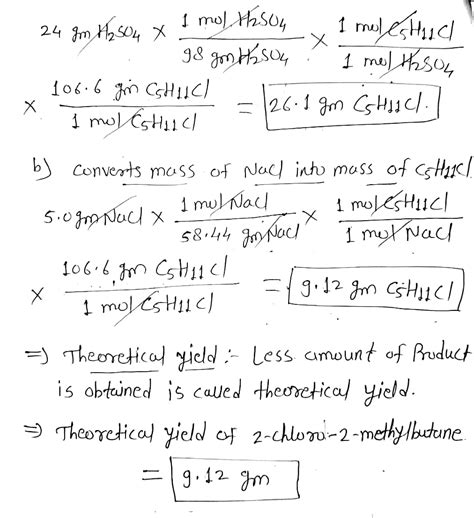 24 gm H2SO4 × 1 mol H2SO4 / 98 gm H2SO4 × 1 mol C5H11Cl / 1 mol H2SO4
× 106.6 gm C5H11Cl / 1 mol C5H11Cl = 26.1 gm C5H11Cl.
b) Converts mass of NaCl into mass of C5H11Cl
5.0 gm NaCl × 1 mol NaCl / 58.44 gm NaCl × 1 mol C5H11Cl / 1 mol NaCl
× 106.6 gm C5H11Cl / 1 mol C5H11Cl = 9.12 gm C5H11Cl
⇒ Theoretical yield :- Less amount of Product
is obtained is called theoretical yield.
⇒ Theoretical yield of 2-chloro-2-methylbutane
= 9.12 gm